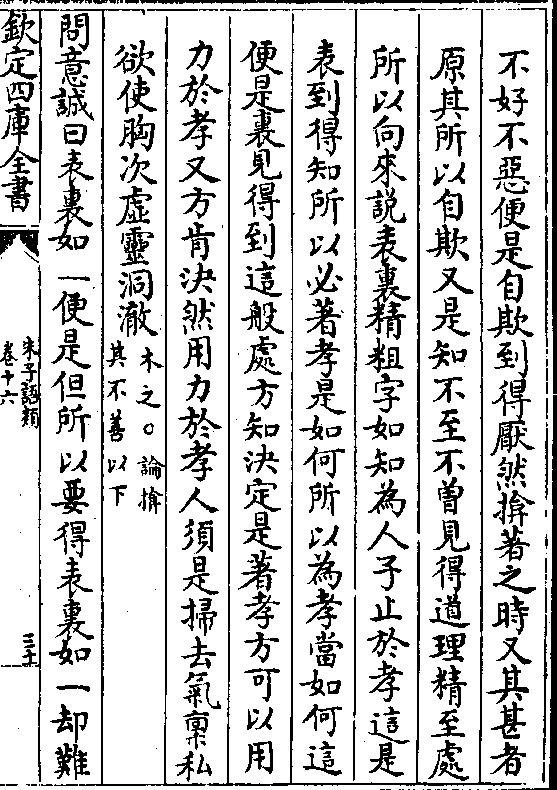 不好不惡便是自欺到得厭然揜著之時又其甚者
原其所以自欺又是知不至不曾見得道理精至處
所以向來說表裏精粗字如知為人子止於孝這是
表到得知所以必著孝是如何所以為孝當如何這
便是裏見得到這般處方知決定是著孝方可以用
力於孝又方肯決然用力於孝人須是掃去氣稟私
欲使胸次虛靈洞澈木之○論揜
其不善以下
問意誠曰表裏如一便是但所以要得表裏如一却難
欽定四庫全書
朱子語類
卷十六
三十